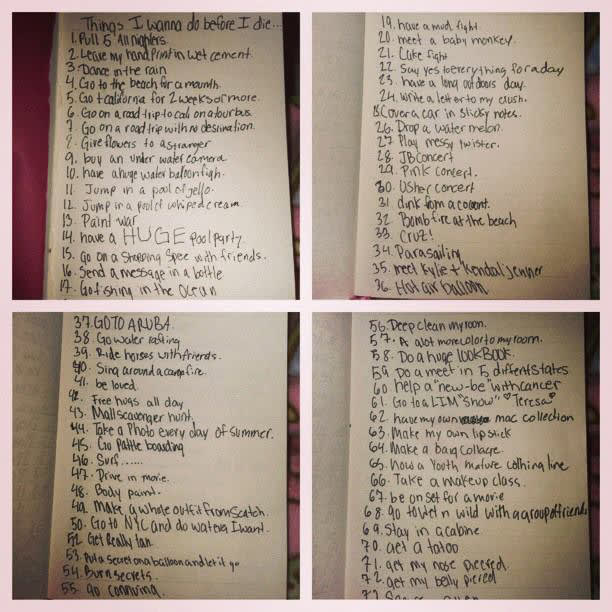 Things I wanna do before I die...
1. Pull 5 All nighters.
2. Leave my hand print in wet cement.
3. Dance in the rain
4. Go to the beach for a mounth.
5. Go t california for 2 weeks or more.
6. Go on a road trip to cali on a tour bus.
7. Go on a road trip with no desination.
8. Give flowers to a stranger
9. buy an under water camera
10. have a huge water balloon figh.
11. Jump in a pool of jello.
12. Jump in a pool of whiped cream.
13. Paint war
14. have a HUGE pool party.
15. Go on a shopping spee with friends.
16. Send a message in a bottle
17. Go fishing in the ocean
19. have a mud fight.
20. meet a baby monkey.
21. Cake fight
22. Say yes to everything for a day
23. have a long outdoors day.
24. write a letter to my crush.
25 Cover a car in sticky notes.
26. Drop a water melon.
27 Play messy twister.
28. JB Concert
29. Pink concert.
30. Usher concert
31 drink from a coconut.
32. Bomb fire at the beach
33. Cruz!
34. Parasailing
35. meet Kylie + Kendal jenner
36. Hot air balloon
37. GO TO ARUBA.
38. Go water rafting
39. Ride horses with friends.
40. Sing around a camp fire.
41. be loved.
42. Free hugs all day
43. Mall scavenger hunt.
44. Take a Photo every day of summer.
45. Go Pattle boarding
46. Surf......
47. Drive in movie.
48. Body paint.
49. Make a whole outfit from scatch.
50. Go to NYC and do watever I want.
52. Get Really tan.
53. Put a secret on a balloon and let it go
54. Burn secrets.
55. go
56. Deep clean my room.
57. A alot more color to my room.
58. Do a huge LOOKBOOK.
59. Do a meet in 5 diffent states
60 help a "new-be" with cancer
61. Go to a LIM "show" ♡Teresa♡
62. have my own mac collection
63. Make my own lipstick
64. Make a baig collage.
65. have a Youth mature colthing line
66. Take a makeup class.
67. be on set for a movie
68. go to wet n wild with a group of friends
69. Stay in a cabine.
70. get a tatoo
71. get my nose piecred.
72. get my belly piecred